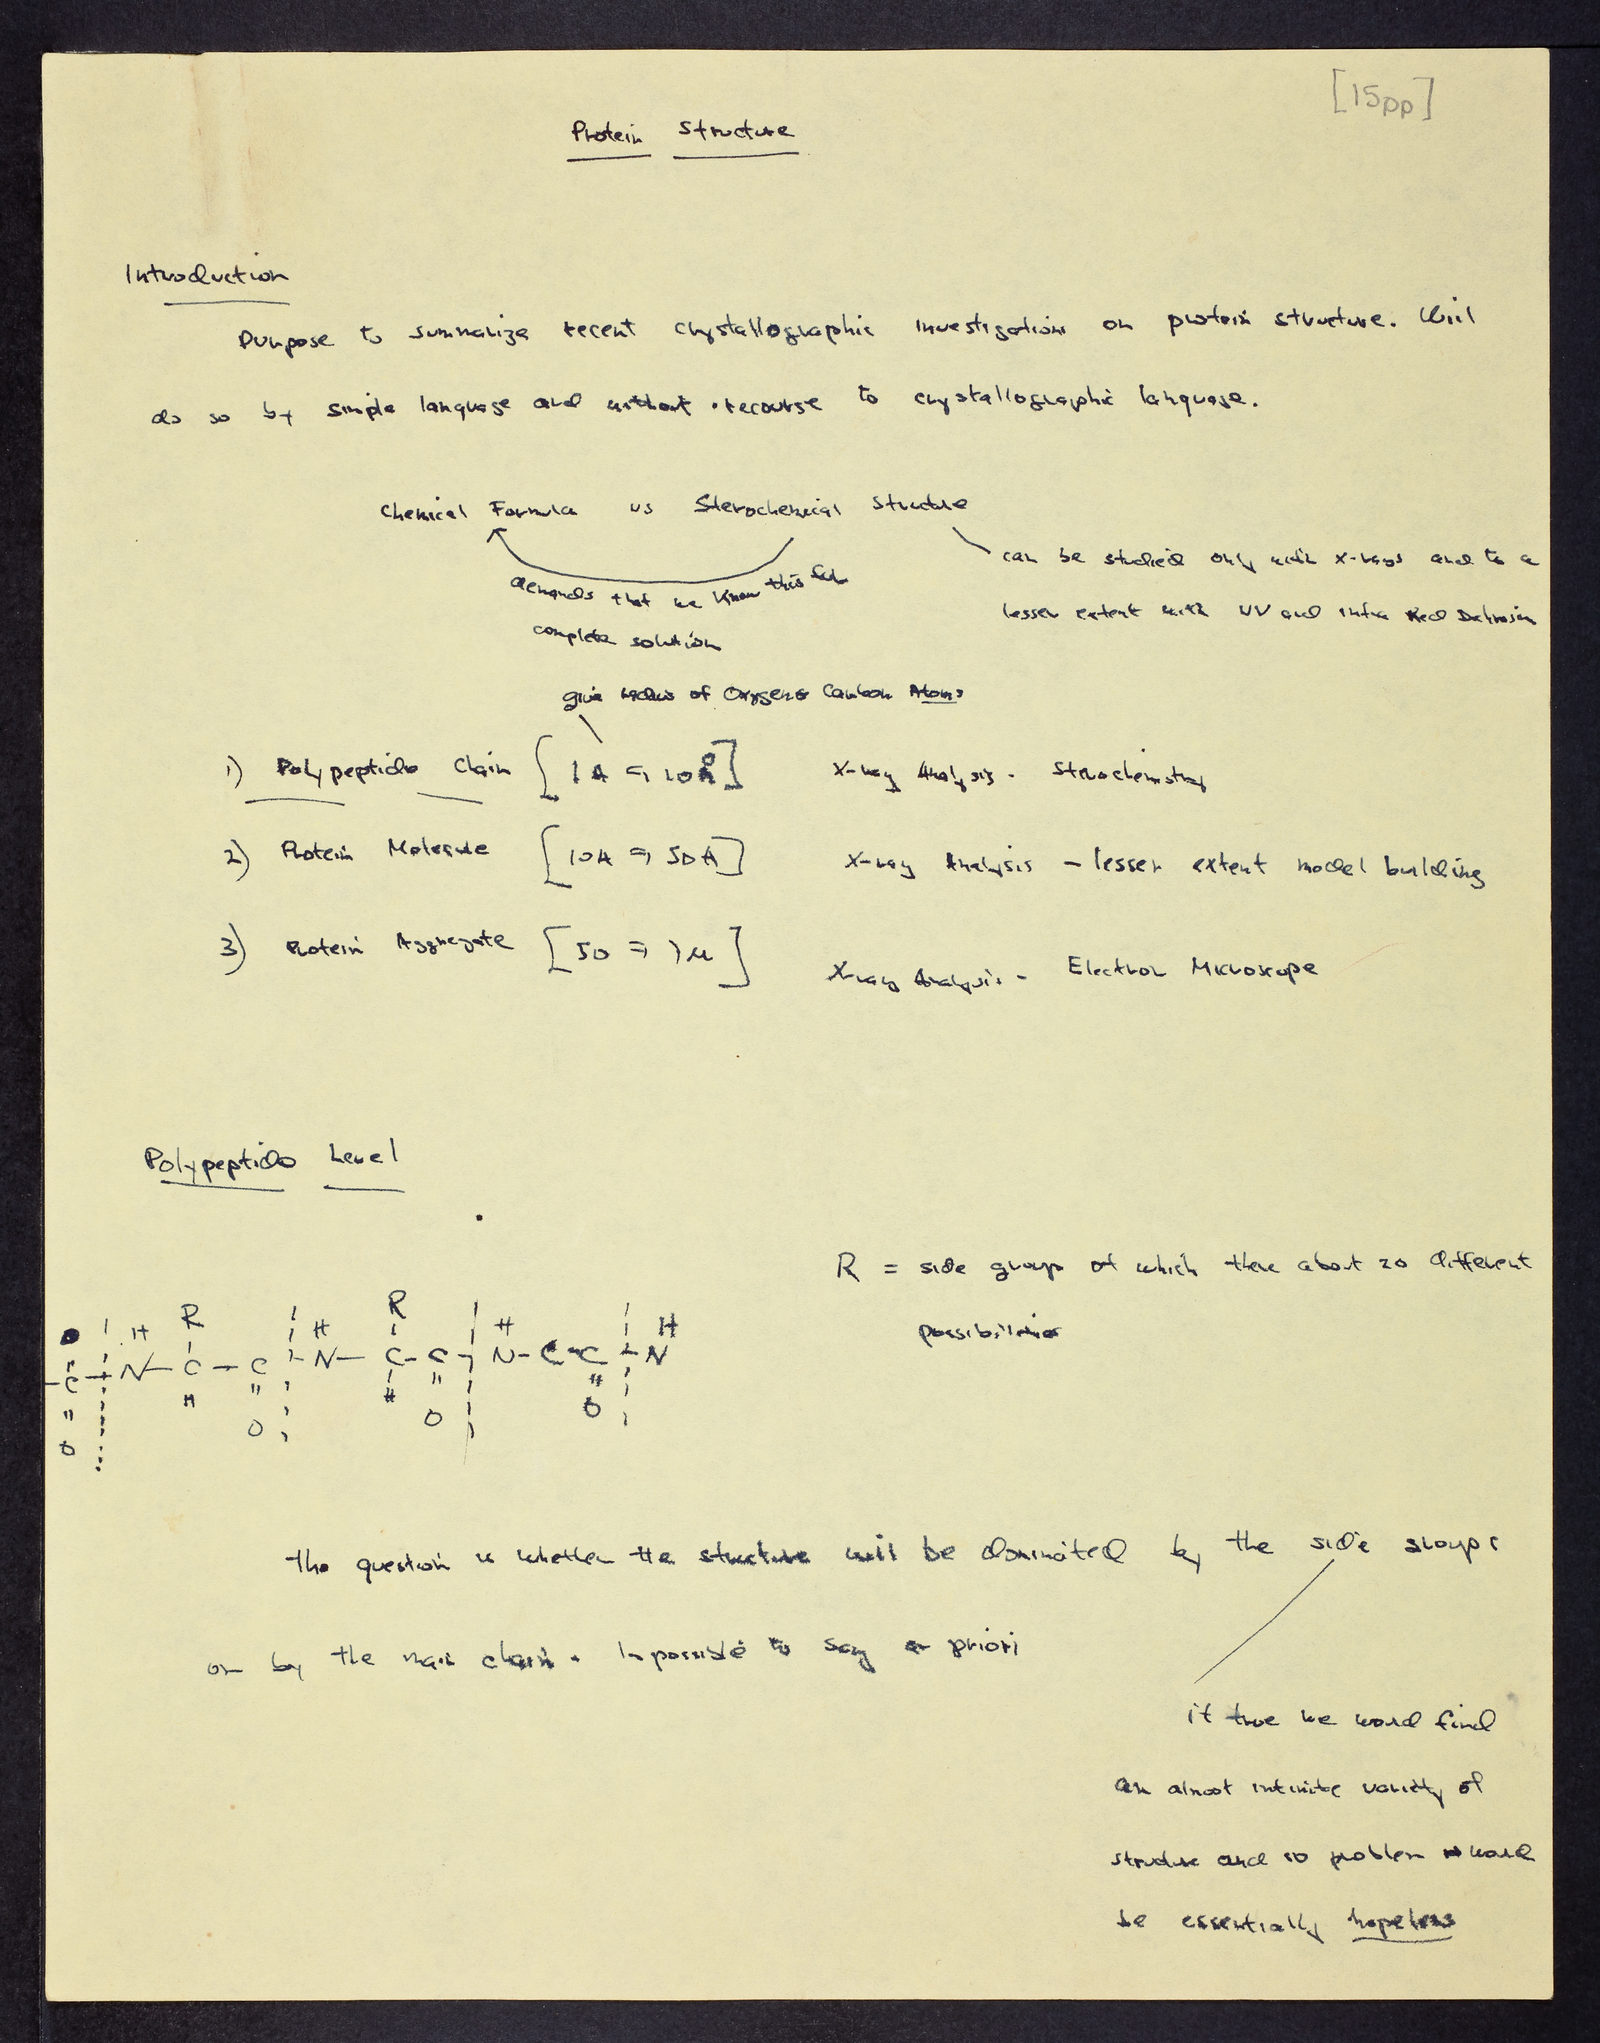 [15pp]
Protein Structure
Introduction
Purpose to summarize recent crystallographic investigations on protein structure. Will
do so by simple language and without recourse to crystallographic language.
Chemical Formula vs Sterochemical Structure
can be studied only with x-rays and to a
lesser extent with UV and Infra Red
demands that we know this for
complete solution
give radius of Oxygen & Carbon Atoms
1) Polypeptide Chain [1A ⇒ 10Å] X-ray Analysis - Sterochemistry
2) Protein Molecule [10A ⇒ 50A] X-ray Analysis - lesser extent model building
3) Protein Aggregate [50 ⇒ 1μ] X-ray Analysis - Electron Microscope
Polypeptide Level
R = side group of which there about 20 different
possibilities
R R
H H H H
C N C C N C C N C C N
H H
O O O O
The question is whether the structure will be dominated by the side groups
or by the main chain. Impossible to say a priori
if true we would find
an almost infinite variety of
structure and so problem would
be essentially hopeless